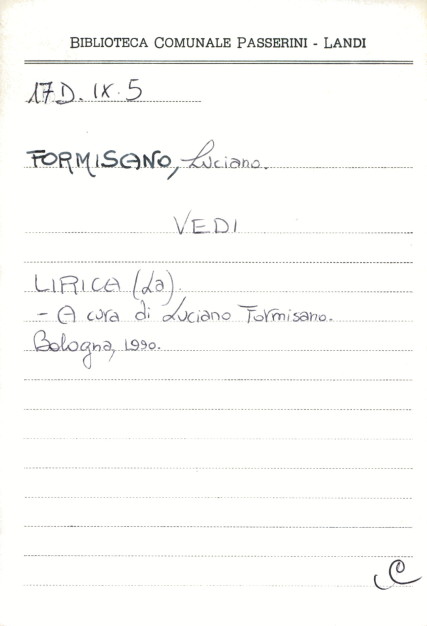 BIBLIOTECA COMUNALE PASSERINI - LANDI
17D. IX. 5
FORMISANO, Luciano.
VEDI
LIRICA (La).
- A cura di Luciano Formisano.
Bologna, 1990.
C